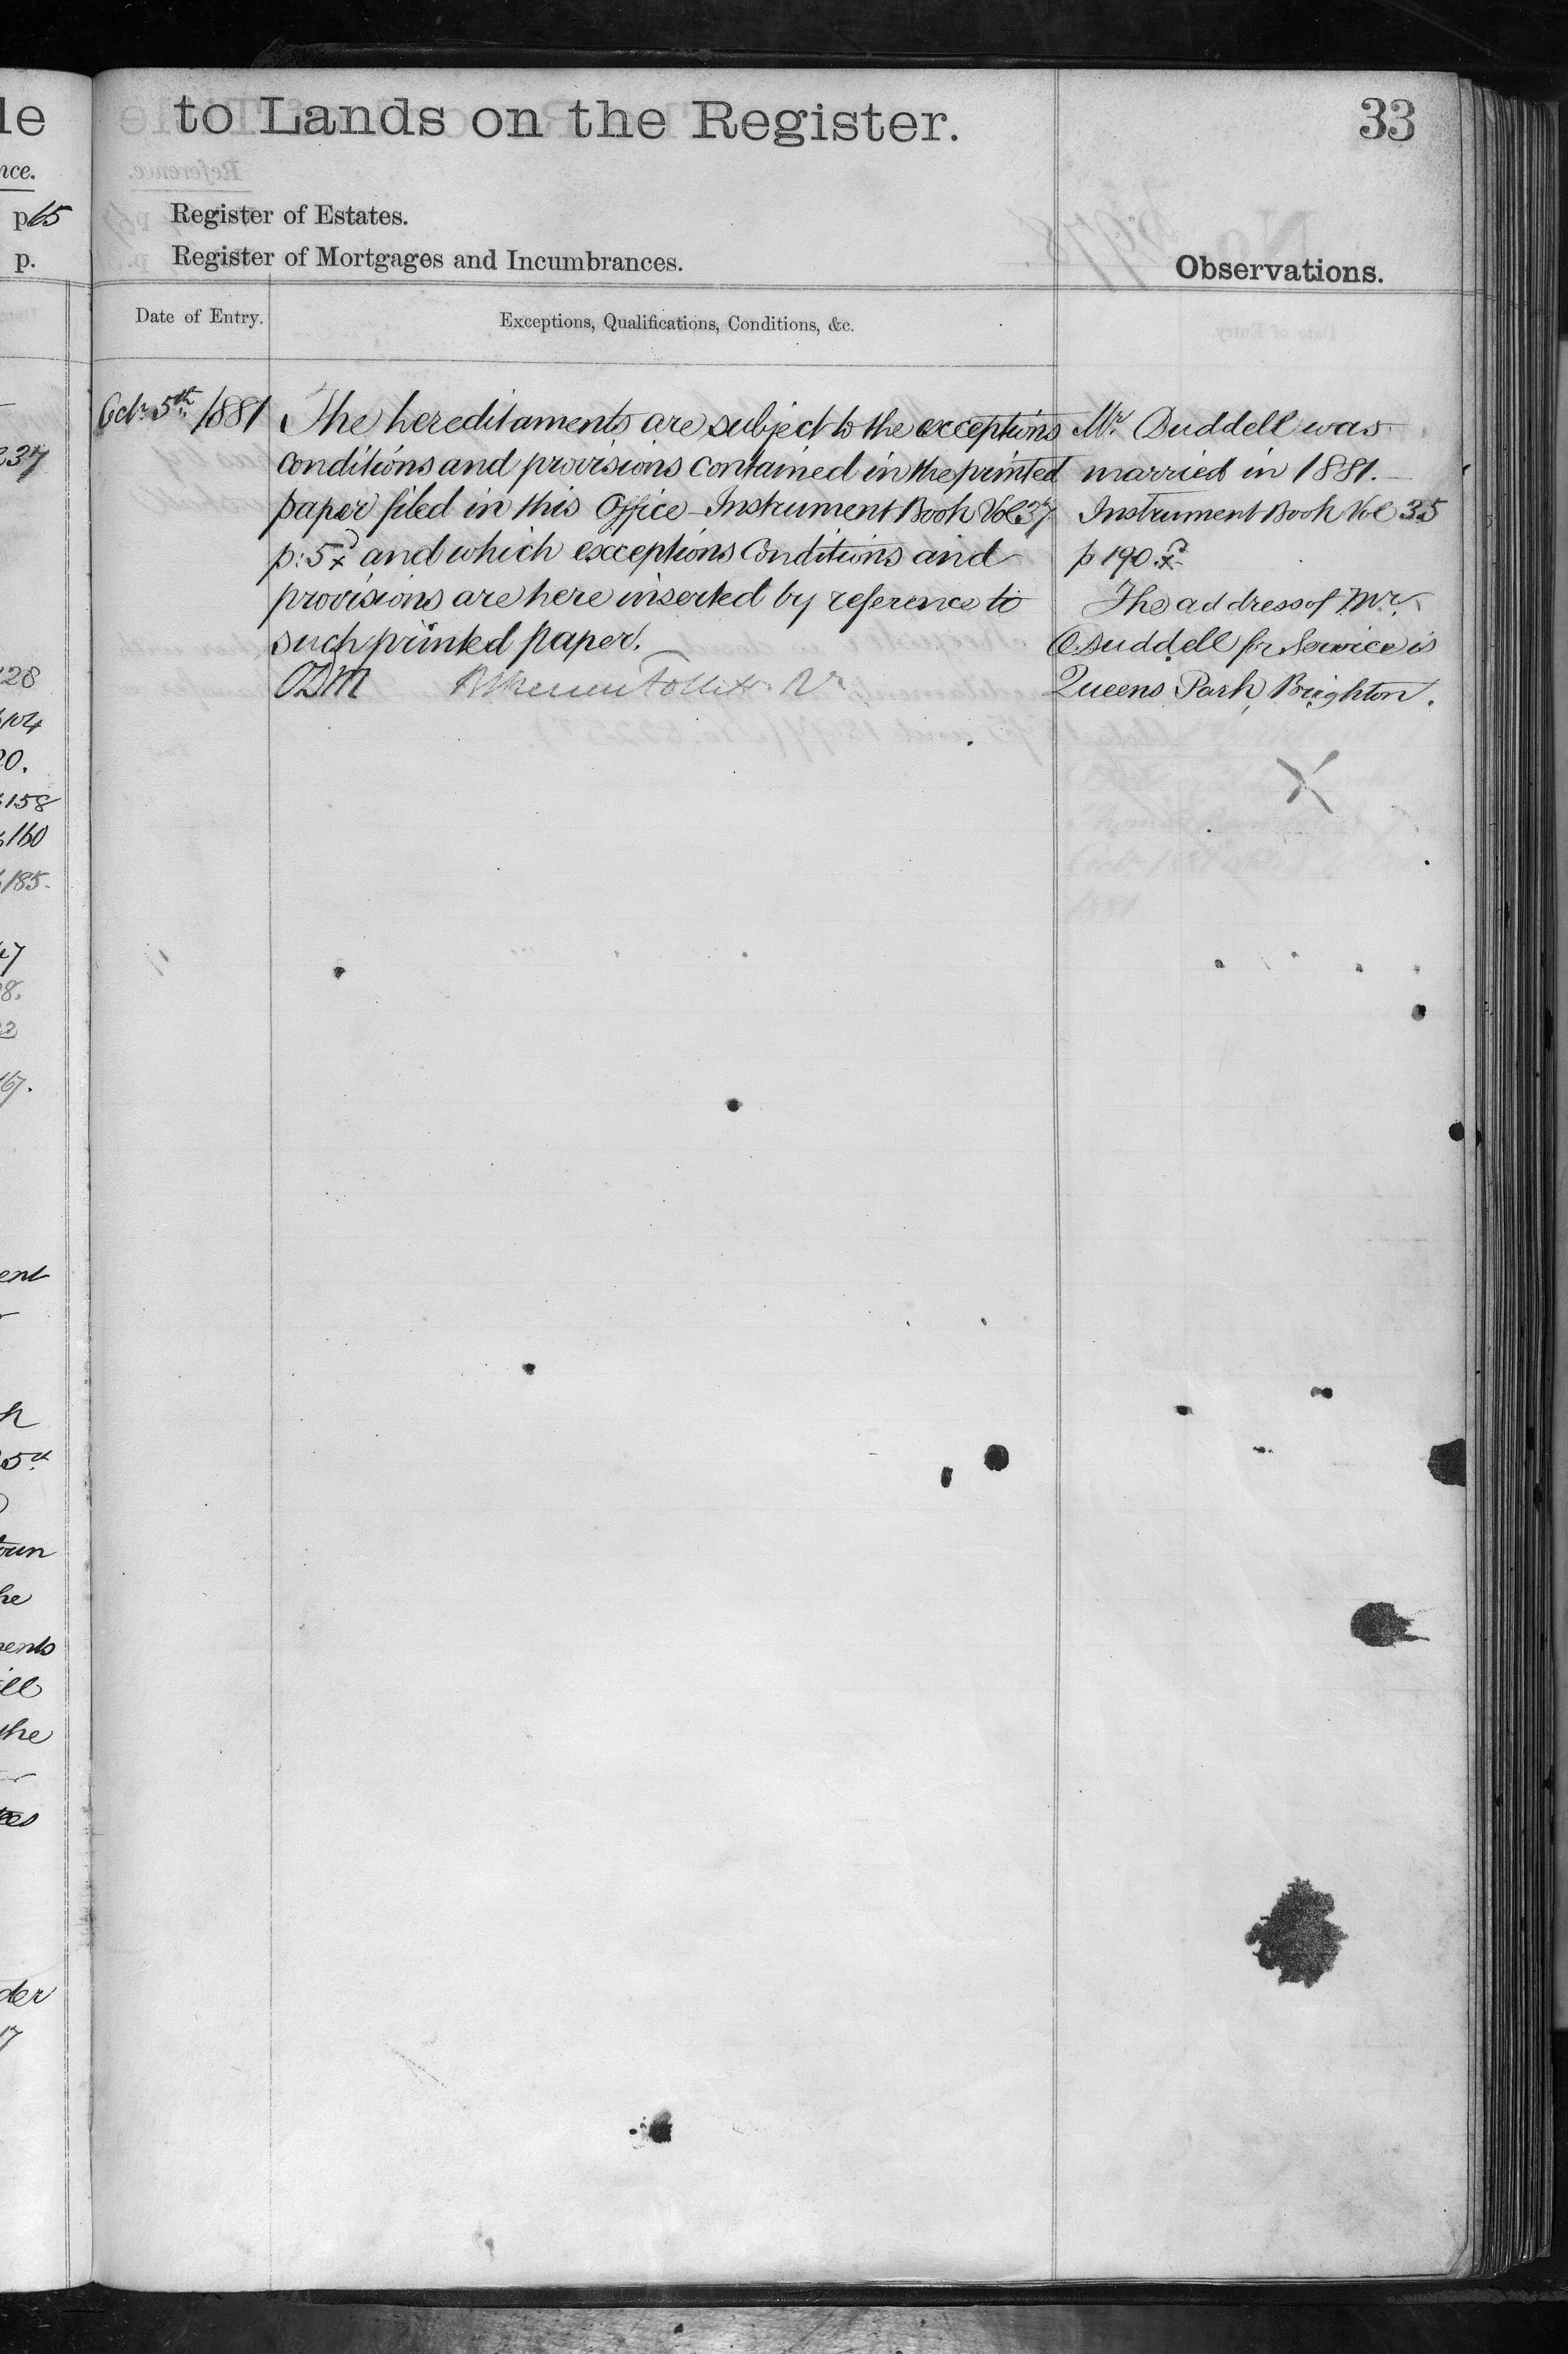 le
nce.
p 65
p.
37
28
104
20.
158
160
185.
47
8.
22
167.
ent
h
5th
oun
he
ments
ill
the
tees
der
17
to Lands on the Register.
33
Register of Estates.
Register of Mortgages and Incumbrances.
Observations.
Date of Entry.
Exceptions, Qualifications, Conditions, &c.
Octr. 5th. 1881
The hereditaments are subject to the exceptions
conditions and provisions contained in the printed
paper filed in this Office – Instrument Book Vol 37
p: 5 and which exceptions Conditions and
provisions are here inserted by reference to
such printed paper.
ODM Follett
Mr. Duddell was
married in 1881. –
Instrument Book Vol 35
p 190.
The address of Mr.
Duddell for Service is
Queens Park, Brighton.
X